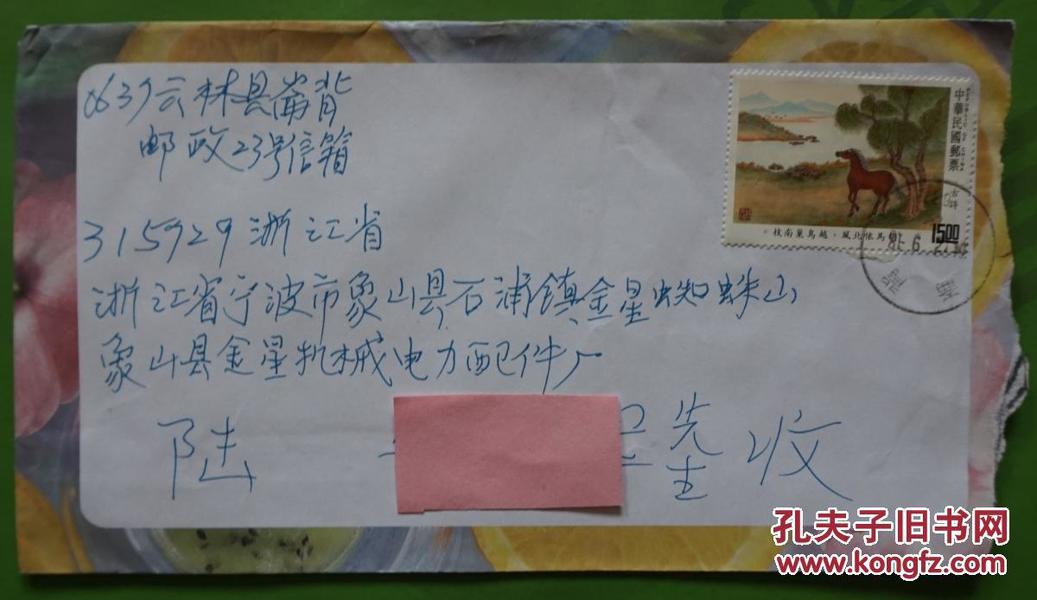 云林县崙背
邮政23号信箱
315929 浙江省
浙江省宁波市象山县石浦镇金星蜘蛛山
象山县金星机械电力配件厂
陆 先生 收
中華民國郵票
胡馬依北風,越鳥巢南枝。
1500
孔夫子旧书网
www.kongfz.com